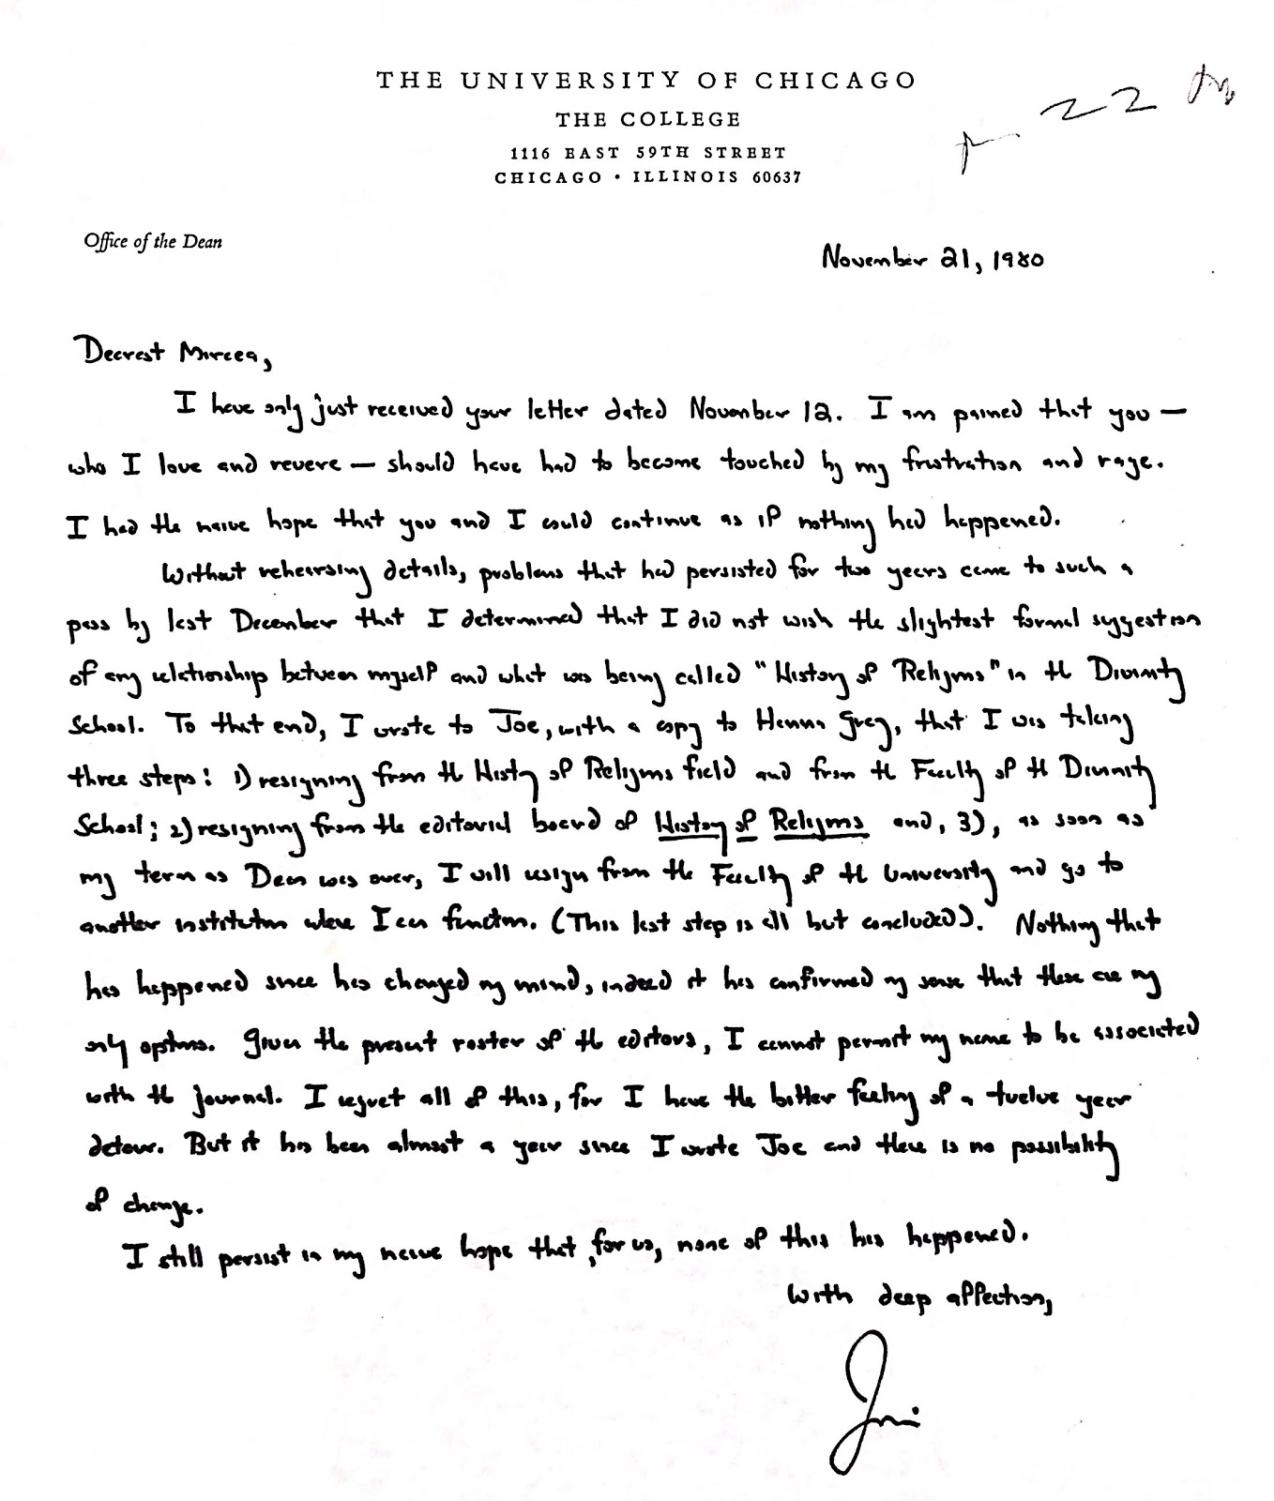 THE UNIVERSITY OF CHICAGO
THE COLLEGE
1116 EAST 59TH STREET
CHICAGO · ILLINOIS 60637
22
Office of the Dean
November 21, 1980
Dearest Mircea,
I have only just received your letter dated November 12. I am pained that you —
who I love and revere — should have had to become touched by my frustration and rage.
I had the naive hope that you and I could continue as if nothing had happened.
Without rehearsing details, problems that had persisted for two years came to such a
pass by last December that I determined that I did not wish the slightest formal suggestion
of any relationship between myself and what was being called "History of Religions" in the Divinity
School. To that end, I wrote to Joe, with a copy to Hanna Gray, that I was taking
three steps: 1) resigning from the History of Religions field and from the Faculty of the Divinity
School; 2) resigning from the editorial board of History of Religions and, 3), as soon as
my term as Dean was over, I will resign from the Faculty of the University and go to
another institution where I can function. (This last step is all but concluded). Nothing that
has happened since has changed my mind, indeed it has confirmed my sense that these are my
only options. Given the present roster of the editors, I cannot permit my name to be associated
with the journal. I regret all of this, for I have the bitter feeling of a twelve year
detour. But it has been almost a year since I wrote Joe and there is no possibility
of change.
I still persist in my naive hope that, for us, none of this has happened.
With deep affection,